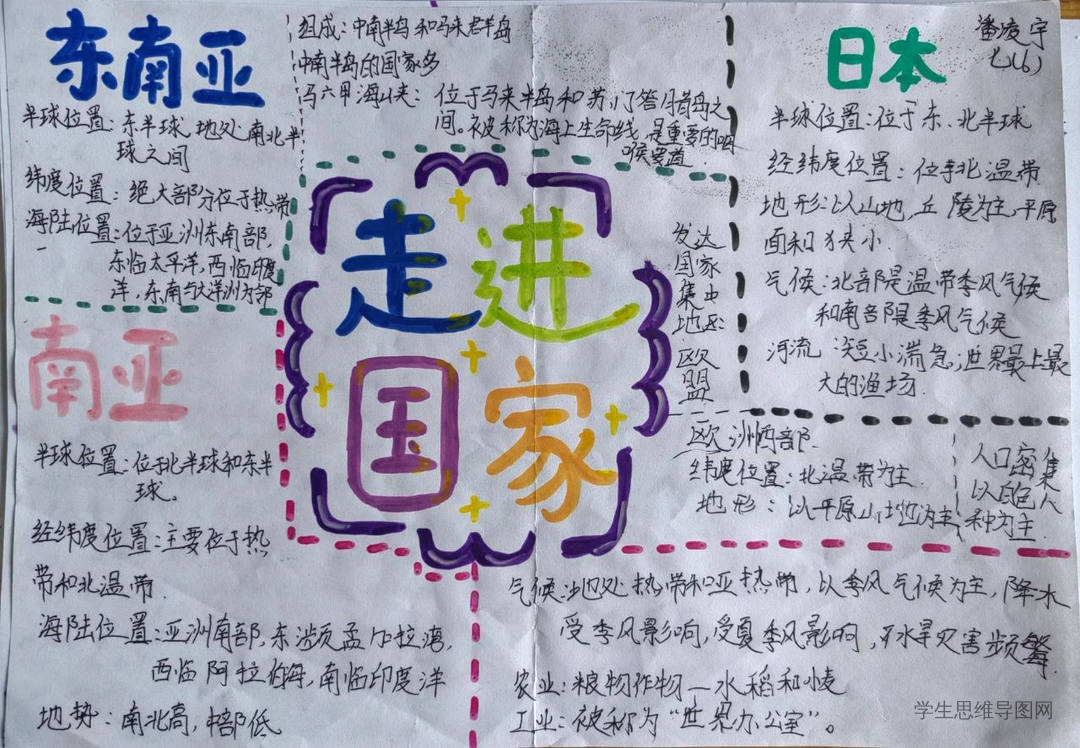 东南亚
半球位置：东半球 地处 南北半
球之间
纬度位置：绝大部分位于热带
海陆位置：位于亚洲东南部，
东临太平洋，西临印度
洋，东南与大洋洲为邻
组成：中南半岛和马来群岛
中南半岛的国家多
马六甲海峡：位于马来半岛和苏门答腊岛之
间。被称为海上生命线，是重要的咽
喉要道
日本
潘凌宇
七(6)
半球位置：位于东、北半球
经纬度位置：位于北温带
地形：以山地，丘陵为主，平原
面积狭小
气候：北部是温带季风气候
和南部是季风气候
河流 短小湍急，世界最上最
大的渔场.
走进
国家
发达
国家
集中
地区：
欧
盟
欧洲西部.
纬度位置：北温带为主.
地形：以平原山地为主
人口密集
以白色人
种为主.
南亚
半球位置：位于北半球和东半
球。
经纬度位置：主要位于热
带和北温带.
海陆位置：亚洲南部，东濒孟加拉湾，
西临阿拉伯海，南临印度洋
地势：南北高，中部低
气候：地处热带和亚热带，以季风气候为主，降水
受季风影响，受夏季风影响，水旱灾害频繁.
农业：粮物作物—水稻和
工业：被称为“世界办公室”。
学生思维导图网